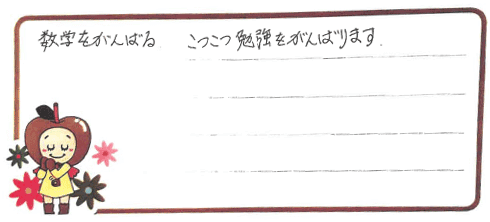 数学をがんばる　こつこつ勉強をがんばります.